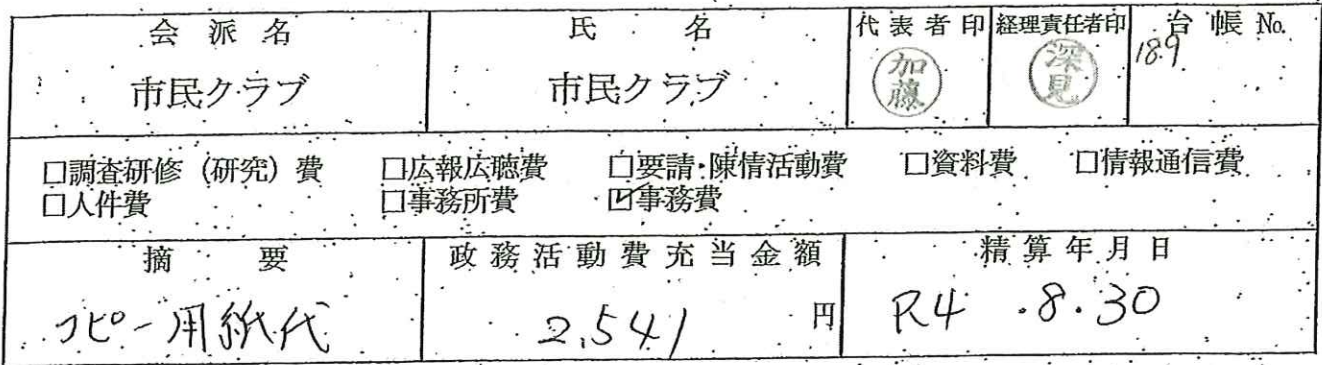 会派名 氏名 代表者印 経理責任者印 台帳No.
市民クラブ 市民クラブ 加藤 深見 189
□調査研修(研究)費 □広報広聴費 □要請・陳情活動費 □資料費 □情報通信費
□人件費 □事務所費 ☑事務費
摘要 政務活動費充当金額 精算年月日
コピー用紙代 2,541円 R4.8.30